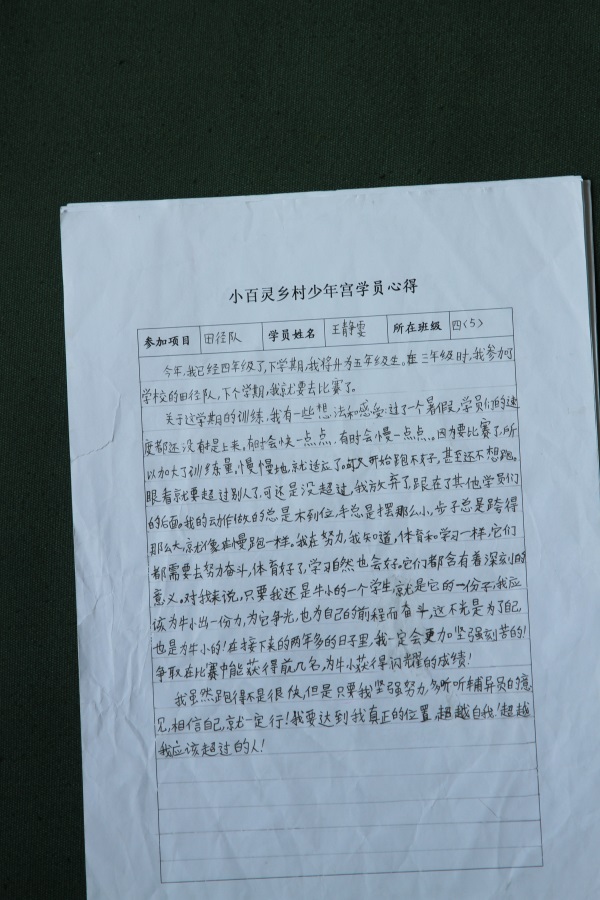 小百灵乡村少年宫学员心得
参加项目 田径队 学员姓名 王静雯 所在班级 四(5)
今年,我已经四年级了,下学期,我将升为五年级生。在三年级时,我参加了
学校的田径队,下个学期,我就要去比赛了。
关于这学期的训练,我有一些想法和感受:过了一个暑假,学员们的速
度都还没有提上来。有时会快一点点,有时会慢一点点。因为要比赛了,所
以加大了训练量,慢慢地,就适应了。开始跑不好,甚至还不想跑。
眼看就要超过别人了,可还是没超过,我放弃了,跟在了其他学员们
的后面。我的动作做的总是不到位,手总是摆那么小,步子总是跨得
那么大,就像慢跑一样。我在努力,我知道,体育和学习一样,它们
都需要去努力奋斗,体育好了,学习自然也会好。它们都含有着深刻的
意义。对我来说,只要我还是牛小的一个学生,就是它的一份子,我应
该为牛小出一份力,为它争光,也为自己的前程而奋斗,这不光是为了自己,
也是为牛小的!在接下来的两年多的日子里,我一定会更加坚强刻苦的!
争取在比赛中能获得前几名,为牛小获得闪耀的成绩!
我虽然跑得不是很快,但是只要我坚强努力,多听听辅导员的意
见,相信自己,就一定行!我要达到我真正的位置,超越自我!超越
我应该超过的人!